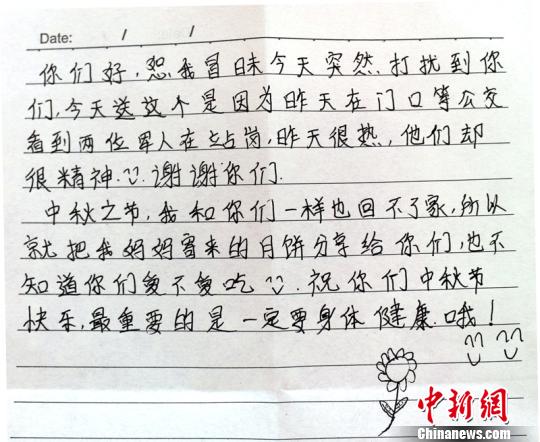 Date: / /
你们好,恕我冒昧今天突然打扰到你
们,今天送这个是因为昨天在门口等公交
看到两位军人在站岗,昨天很热,他们却
很精神.谢谢你们.
中秋之节,我和你们一样也回不了家,所以
就把我妈妈寄来的月饼分享给你们,也不
知道你们爱不爱吃.祝你们中秋节
快乐,最重要的是一定要身体健康.哦!
中新網
Chinanews.com